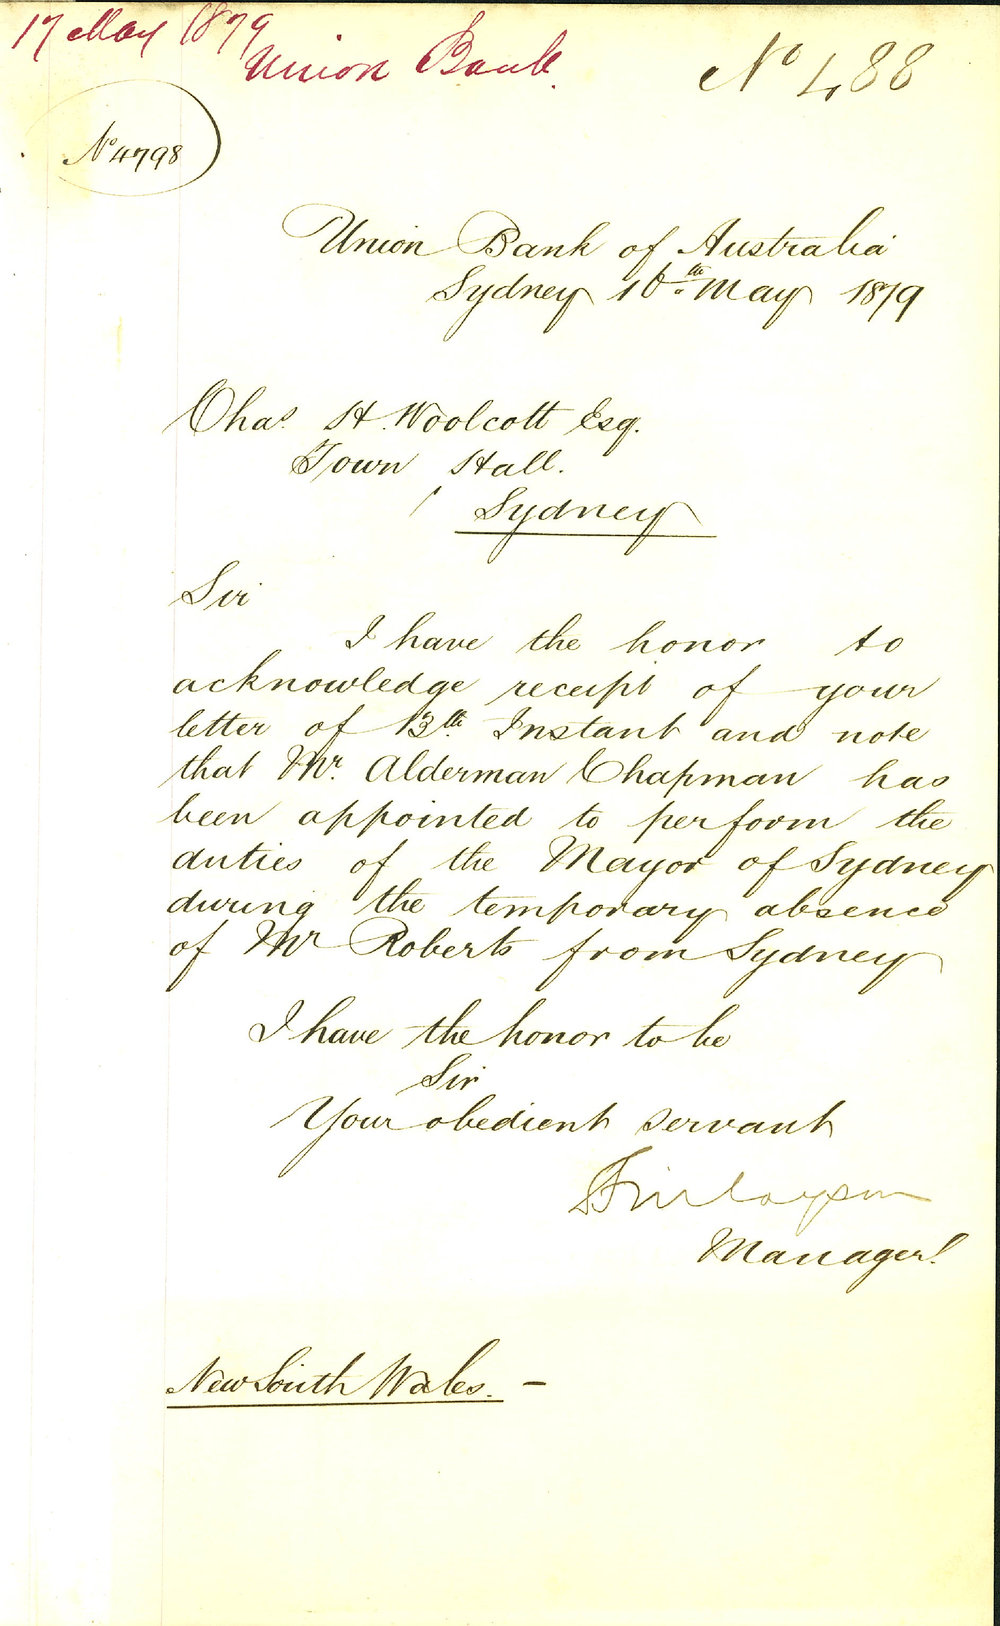 17 May 1879
Union Bank.
No 488
No 4798
Union Bank of Australia
Sydney 16th May 1879
Chas. H. Woolcott Esq.
Town Hall.
Sydney
Sir
I have the honor to
acknowledge receipt of your
letter of 13th. Instant and note
that Mr. Alderman Chapman has
been appointed to perform the
duties of the Mayor of Sydney
during the temporary absence
of Mr Roberts from Sydney
I have the honor to be
Sir
Your obedient servant
Finlayson
Manager.
New South Wales. —